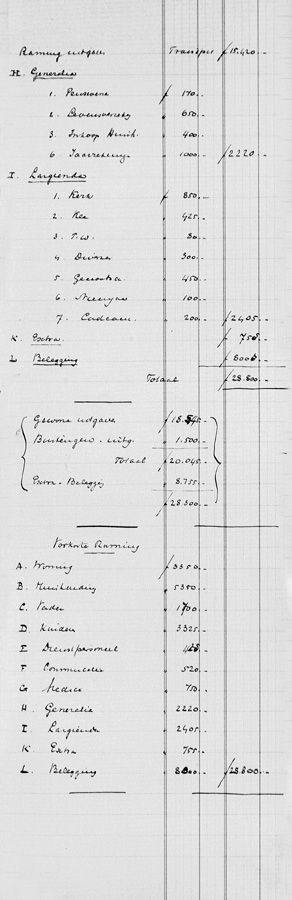 Raming uitgaven Transport ƒ 15.420.-
H. Generalia
1. Pensioena ƒ 170.-
2. Levensverzek. " 650.-
3. Inkoop Huish. " 400.-
6. Jaarrekening " 1000.- ƒ 2220.-
I. Largienda
1. Kerk ƒ 850.-
2. " 425.-
3. T.W. " 80.-
4. Diversen " 300.-
5. " 450.-
6. " 100.-
7. Cadeaux. " 200.- ƒ 2405.-
K. Extra. ƒ 755.-
L. Belegging ƒ 8000.-
Totaal ƒ 28.800.-
Gewone uitgaven ƒ 18.545.-
Buitengew. uitg. " 1.500.-
Totaal ƒ 20.045.-
Extra-Belegging " 8.755.-
ƒ 28.800.-
Verkorte Raming
A. Woning ƒ 3350.-
B. Huishouding " 5350.-
C. Vader " 1700.-
D. Kinderen " 3325.-
E. Dienstpersoneel " 425.-
F. Communicatie " 520.-
G. Medica " 750.-
H. Generalia " 2220.-
I. Largienda " 2405.-
K. Extra " 755.-
L. Belegging " 8000.- ƒ 28.800.-